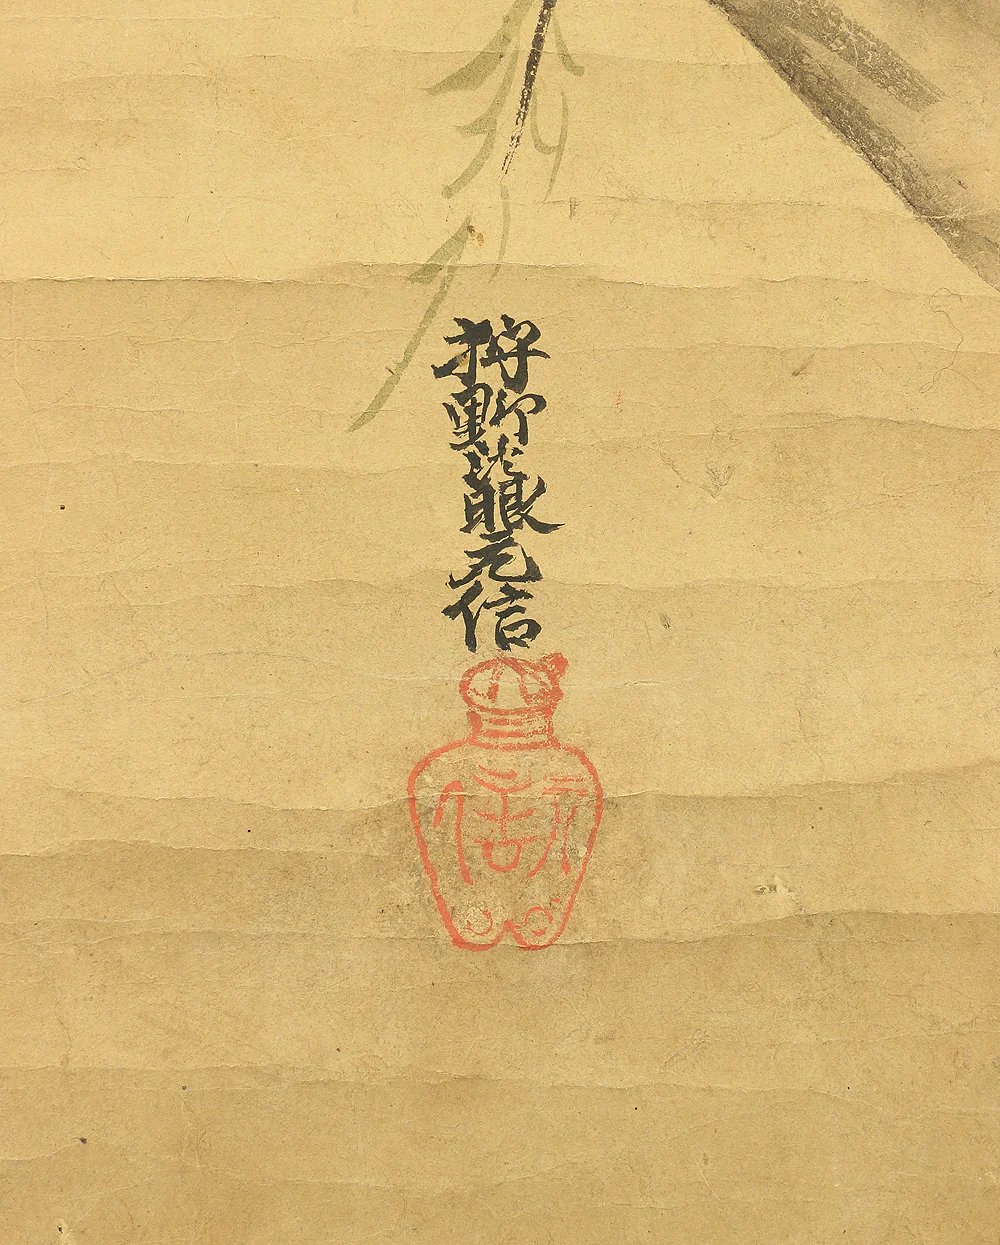 狩野法眼元信
元信